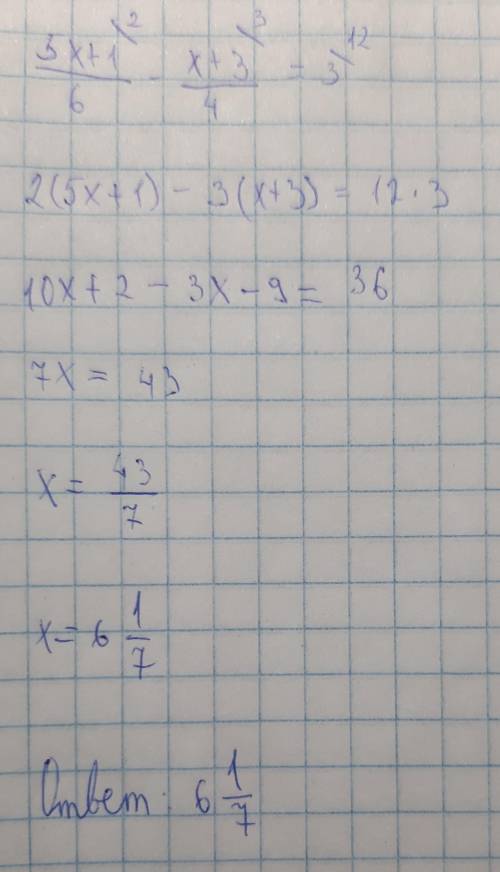 (5x+1)/6 \2 - (x+3)/4 \3 = 3 \12
2(5x+1) - 3(x+3) = 12 · 3
10x + 2 - 3x - 9 = 36
7x = 43
x = 43/7
x = 6 1/7
Ответ: 6 1/7